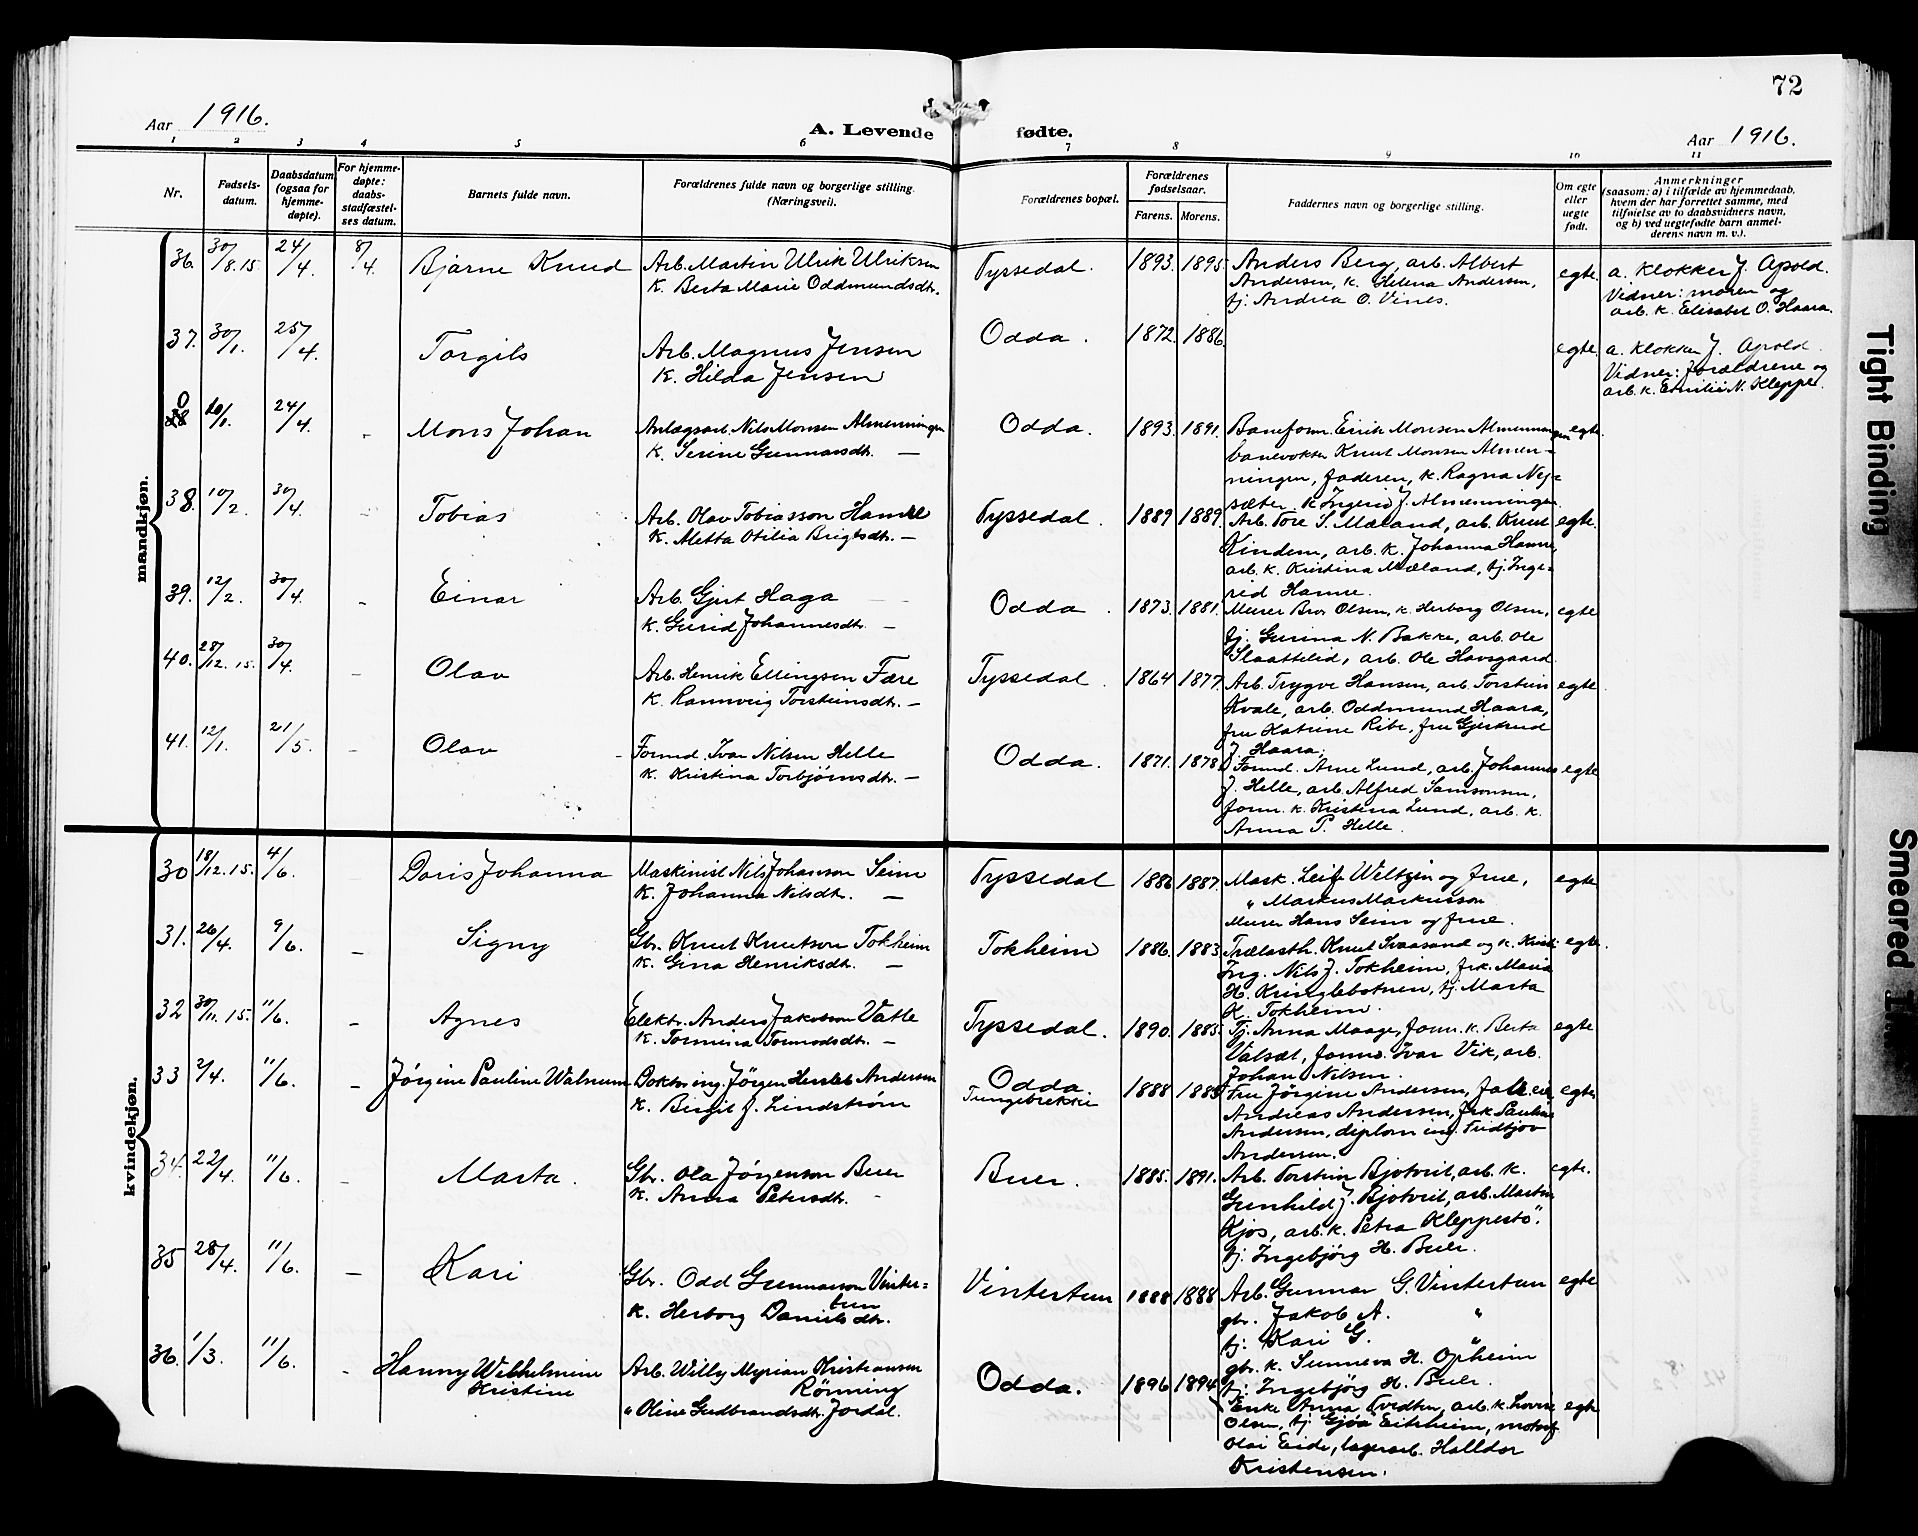 72
Aar 1916.
A. Levende fødte.
Aar 1916.
1 2 3 4 5 6 7 8 9 10 11
Nr.
Fødsels-
datum.
Daabsdatum
(ogsaa for
hjemme-
døpte).
For hjemme-
døpte:
daabs-
stadfæstel-
ses datum.
Barnets fulde navn.
Forældrenes fulde navn og borgerlige stilling.
(Næringsvei).
Forældrenes bopæl.
Forældrenes
fødselsaar.
Farens. Morens.
Faddernes navn og borgerlige stilling.
Om egte
eller
uegte
født.
Anmerkninger
(saasom: a) i tilfælde av hjemmedaab,
hvem der har forrettet samme, med
tilføielse av to daabsvidners navn,
og b) ved uegtefødte barn anmel-
derens navn m. v.).
mandkjøn.
36. 30/8.15 24/4. 8/4. Bjarne Knud
Arb. Martin Ulrik Ulriksen
k. Berta Marie Oddmundsdtr.
Tyssedal. 1893. 1895.
Anders Berg, arb. Albert
Andersen, k. Helena Andersen,
tj. Andrea O. Vines.
egte
a. Klokker J. Apold.
Vidner: moren og
arb. k. Elisabet O. Haara.
37. 30/1. 25/4. Torgils
Arb. Magnus Jensen
k. Hilda Jensen
Odda. 1872. 1886.
egte
a. Klokker J. Apold.
Vidner: forældrene og
arb. k. Emilie N. Kleppe.
0
38 10/1. 24/4. - Mons Johan
Anlægsarb. Nils Monsen Almenningen
k. Serine Gunnarsdtr. —
Odda. 1893. 1891.
Baneform. Eirik Monsen Almenningen
banevokter Knut Monsen Almen-
ningen, faderen, k. Ragna Nep-
sæter, k. Ingerid J. Almenningen
egte.
38. 10/2. 30/4. - Tobias
Arb. Olav Tobiasson Hamre
k. Metta Otilia Brigtsdtr. —
Tyssedal. 1889 1889.
Arb. Tore S. Mæland, arb. Knut
Kindem, arb. k. Johanna Hamre,
arb. k. Kristina Mæland, tj. Inge-
rid Hamre.
egte.
39. 12/2. 30/4. - Einar
Arb. Gjert Haga
k. Gurid Johannesdtr. —
Odda. 1873. 1881.
Murer Bror Olsen, k. Herborg Olsen,
tj. Gurina N. Bakke, arb. Ole
Slaattelid, arb. Ole Havsgaard
egte
40. 28/12. 15. 30/4. - Olav
Arb. Henrik Ellingsen Fære
k. Rannveig Torsteinsdtr. —
Tyssedal. 1864 1877.
Arb. Trygve Hansen, arb. Torstein
Kvale, arb. Oddmund Haara,
fru Katrine Ribe, fru Gjertrud
J. Haara.
egte
41. 12/1. 21/5. - Olav
Formd. Ivar Nilsen Helle
k. Kristina Torbjørnsdtr. —
Odda. 1871. 1878.
Formd. Arne Lund, arb. Johannes
J. Helle, arb. Alfred Samsonsen,
form. k. Kristina Lund, arb. k.
Anna P. Helle.
egte
kvindekjøn.
30 18/12. 15. 4/6. Doris Johanna
Maskinist Nils Johansson Seim
k. Johanna Nilsdtr. —
Tyssedal 1886 1887.
Mask. Leif Weltzin og frue,
" Markus Markusson
Murer Hans Seim og frue.
egte
31. 26/4. 9/6. - Signy
Gbr. Knut Knutson Tokheim
k. Gina Henriksdtr. —
Tokheim 1886. 1883.
Trælasth. Knut Svaasand og k. Kristi
Ing. Nils J. Tokheim, frk. Maria
H. Kringlebotnen, tj. Marta
K. Tokheim.
egte.
32 30/11. 15. 11/6. - Agnes
Elektr. Anders Jakobson Vatle
k. Tormodsdtr. —
Tyssedal. 1890. 1885.
Tj. Anna Maage, form. k. Berta
Valsæt, formd. Ivar Vik, arb.
Johan Nilsen.
egte
33 2/4. 11/6. - Jørgine Pauline Walnum
Doktor ing. Jørgen Herslet Andersen
k. Birgit J. Lindstrøm
Odda.
1888 1885
Fru Jørgine Andersen,
Andreas Andersen, frk Pauline
Andersen, diplom ing. Fridtjov
Andersen.
egte
34. 22/4. 11/6. - Marta.
Gbr. Ola Jørgenson Buer
k. Anna Petersdtr. -
Buer. 1885. 1891.
Arb. Torstein Bjotveit, arb. k.
Gunhild J. Bjotveit, arb. Martin
Kjos, arb. k. Petra Kleppestø.
tj. Ingebjørg H. Buer.
egte.
35 28/4. 11/6. - Kari
Gbr. Odd Gunnarson Vinter=
tun
k. Herborg Danielsdtr.
Vintertun 1888 1888
Arb. Gunnar G. Vintertun
gbr. Jakob A. "
tj. Kari G. "
gbr. k. Sunneva H. Opheim
tj. Ingebjørg H. Buer.
egte
36. 1/3. 11/6. - Hanny Wilhelmine
Kristine
Arb. Willy Myrian Kristiansen
Rönning
" Oline Gudbrandsdtr. Jordal.
Odda. 1896 1894
Enke Anna Tvedten, arb. k. Lovise
Olsen, tj. Gjøa Eitrheim,
Olai Eide, lagerarb. Halldor
Kristensen.
egte
Tight Binding
Smeared